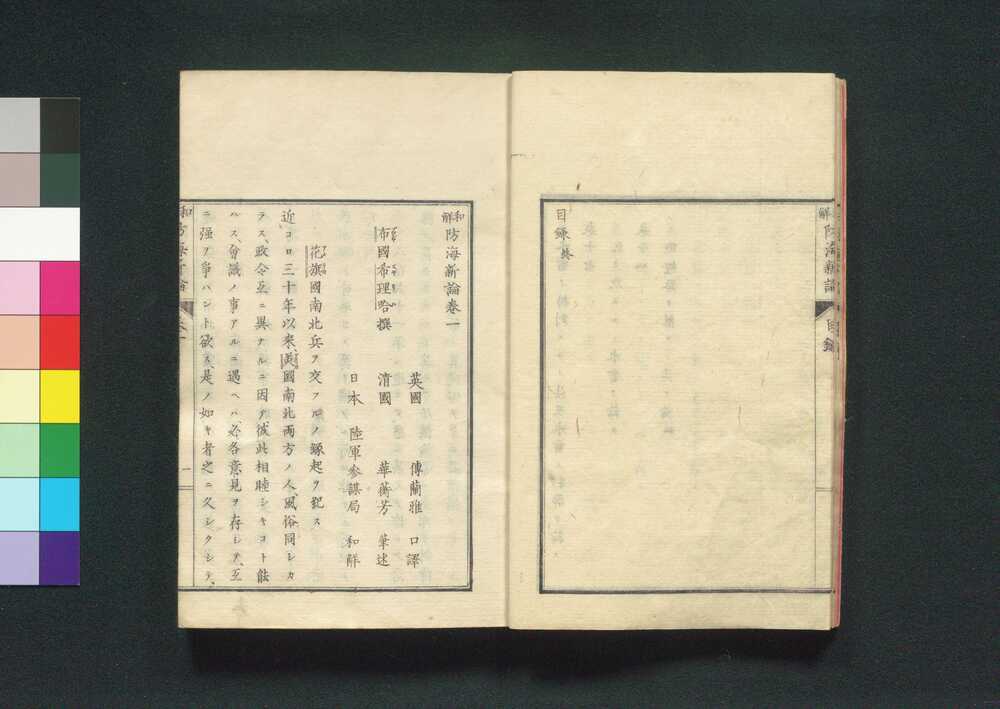 和解防海新論 目錄
目錄終
和解防海新論卷一
布國希理哈撰
英國 傅蘭雅 口譯
清國 華蘅芳 筆述
日本 陸軍參謀局 和解
花旗國南北兵ヲ交フルノ緣起ヲ説ス
近コロ三十年以來、美國南北両方ノ人、風俗同シカ
ラス、政令互ニ異ナルニ因テ彼此相睦シキコト能
ハス、會議ノ事アルニ遇ヘハ、必各意見ヲ存シテ、互
ニ强ヲ爭ハント欲ス是ノ如キ者之ニ久シクシテ、